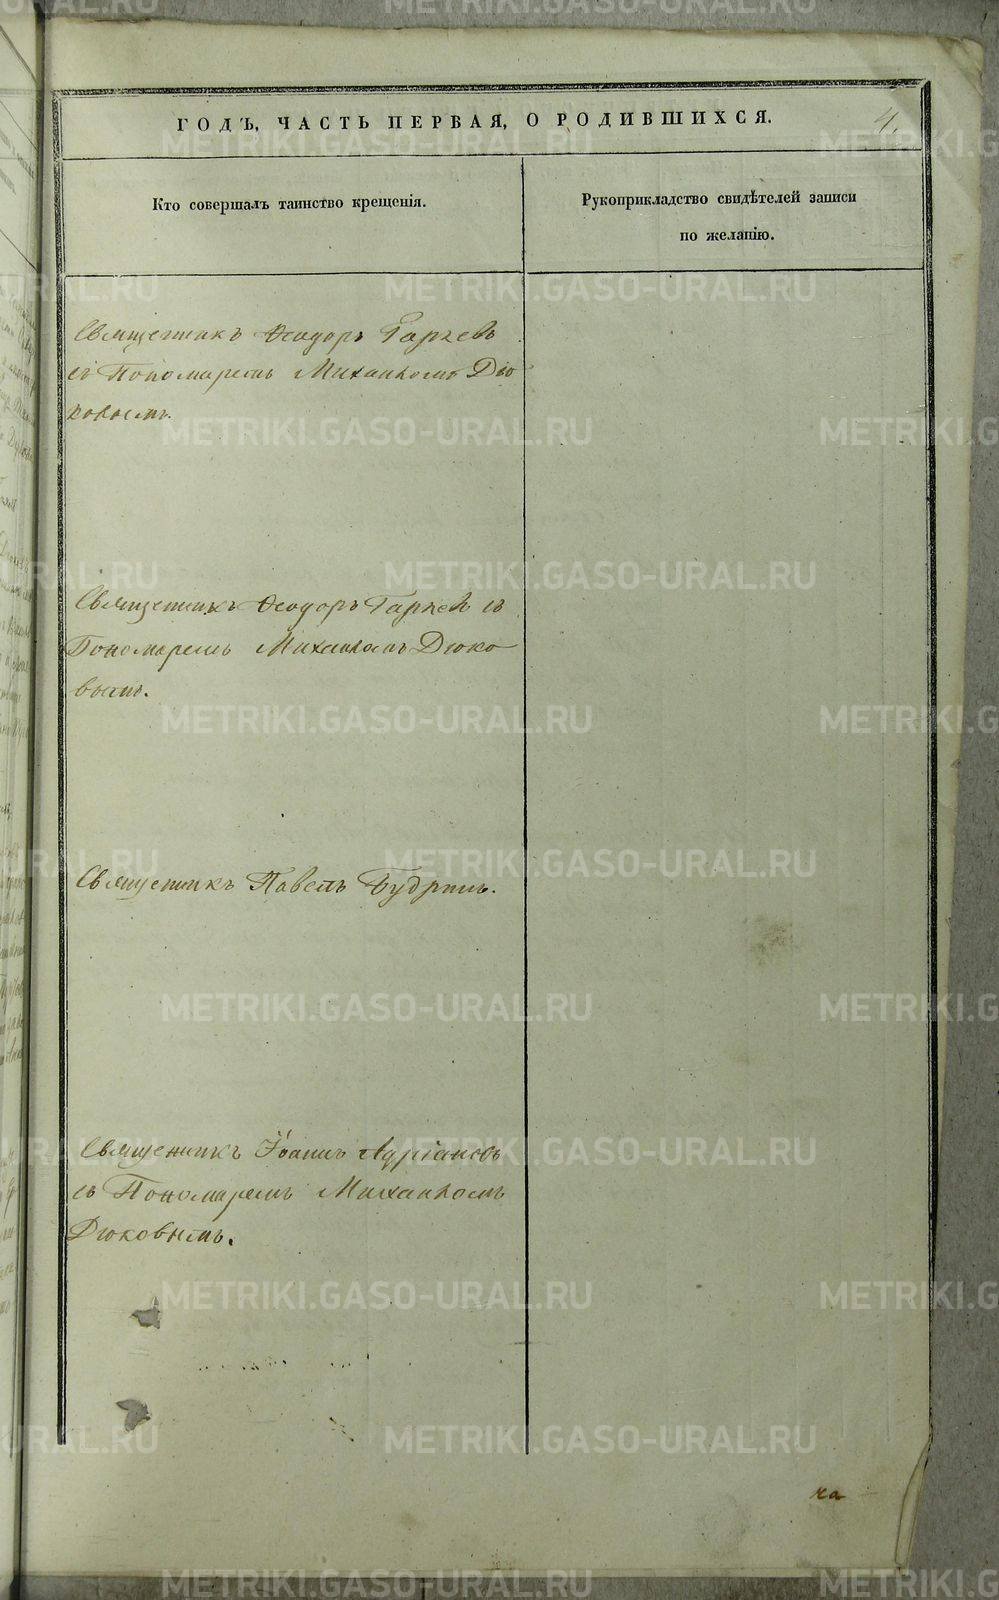 ГОДЪ, ЧАСТЬ ПЕРВАЯ, О РОДИВШИХСЯ.
4.
Кто совершалъ таинство крещенія.
Рукоприкладство свидѣтелей записи
по желанію.
Священникъ Ѳеодоръ Гаряевъ
съ Пономаремъ Михаиломъ Дю
ковымъ.
Священникъ Ѳеодоръ Гаряевъ съ
Пономаремъ Михаиломъ Дюко
вымъ.
Священникъ Павелъ Будринъ.
Священикъ Іоаннъ Адріановъ
съ Пономаремъ Михаиломъ
Дюковымъ.
на
METRIKI.GASO-URAL.RU